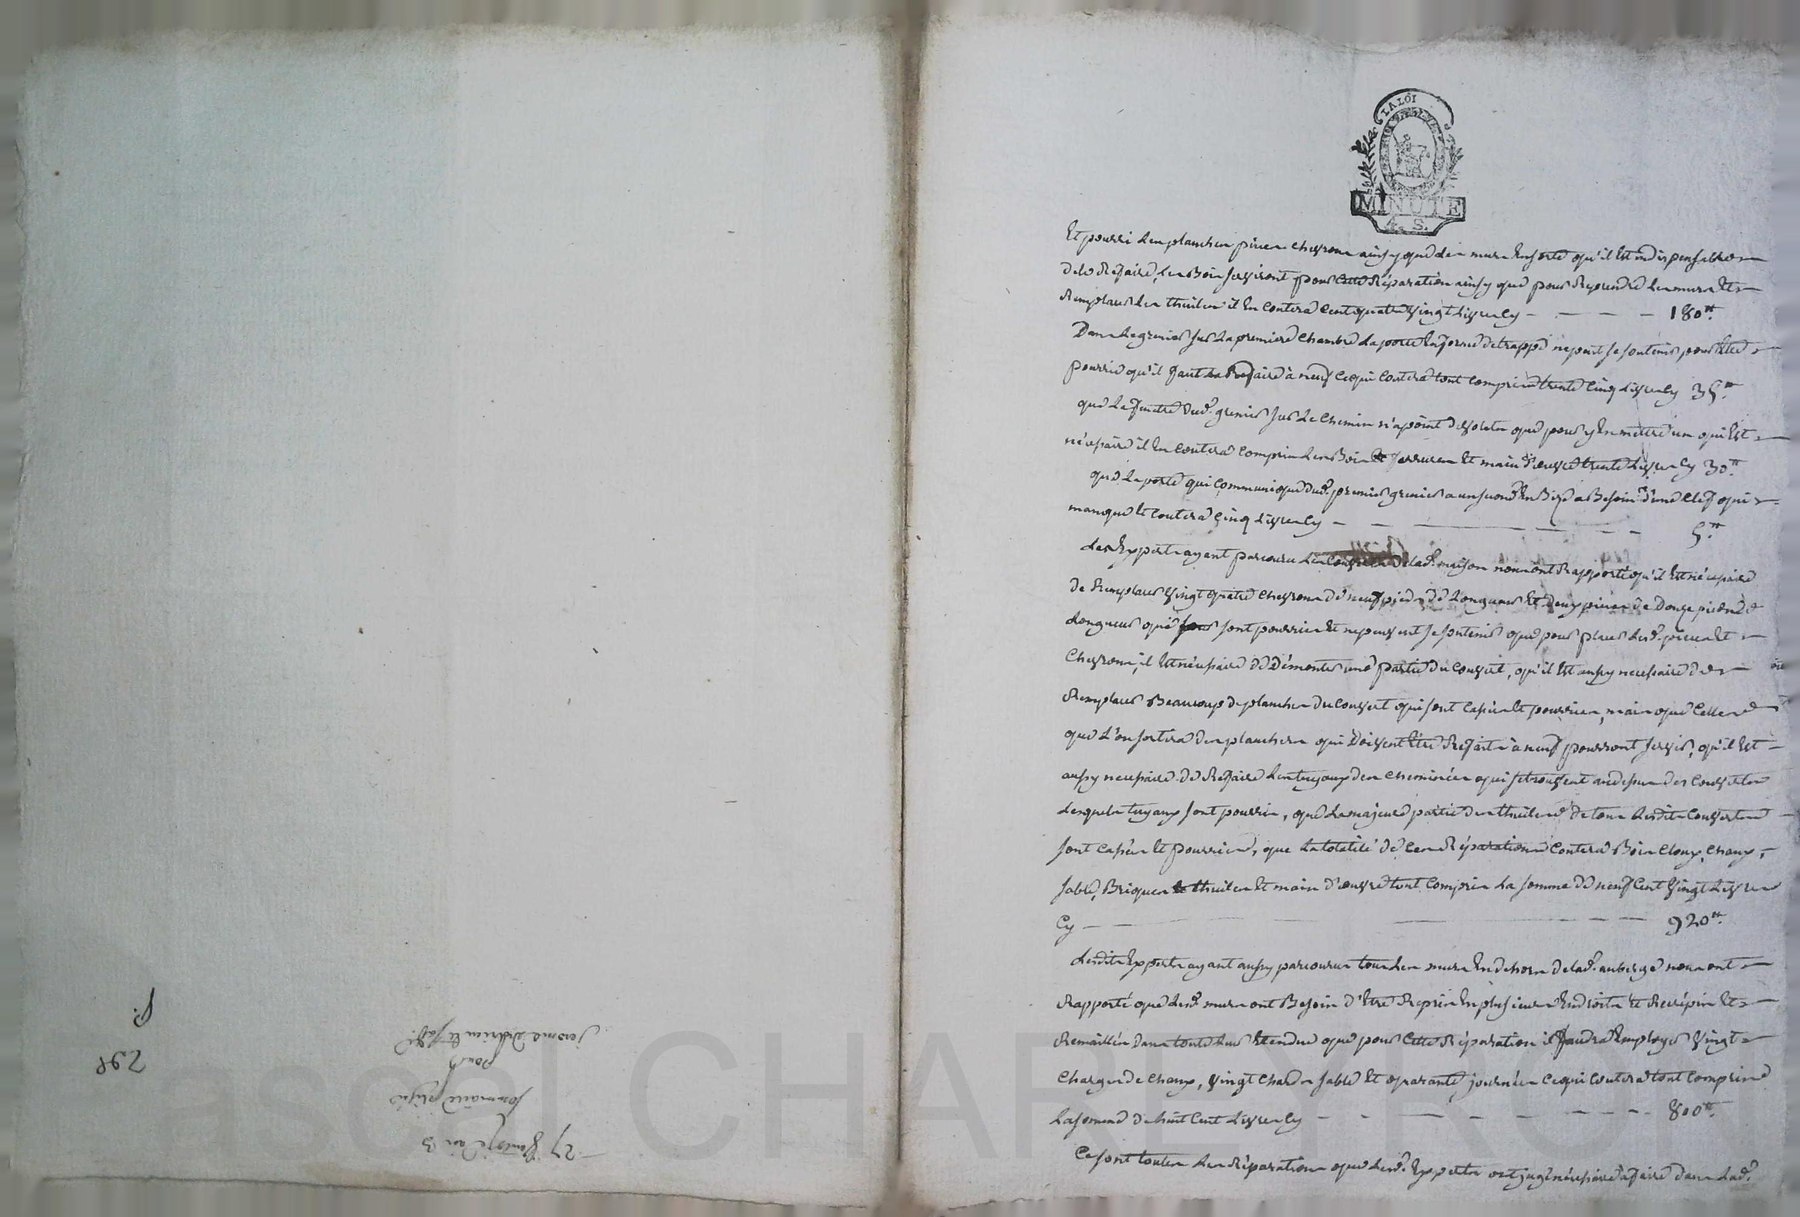 27 Ventose an 3
sommaire prise
pour
jerome Debrieu et Jossé
298
p.
LA LOI
MINUTE
4. S.
Et pourri les planches pieces chevrons ainsy que les murs Ensorte qu'il Est indispensable
de le Refaire, Les Bois serviront pour cette Réparation ainsy que pour Reprendre Les murs Et
Remplacer Les thuiles il En Coutera Cent quatre Vingt Livres Cy - - - - 180tt.
Dans Le grenier sur La premiere Chambre La porte En forme de trappe ne peut se soutenir pour Etre
pourrie qu'il faut La Refaire à neuf Ce qui Coutera tout Compris trente Cinq Livres Cy 35tt
que La fenetre dud. grenier sur Le Chemin n'a point de volets que pour y En mettre un qui Est
nécessaire il En Coutera Compris Les Bois ferrures Et main d'oeuvre trente Livres Cy 30tt
que La porte qui Communique dud. premier grenier a un second En Bize a Besoin d'une Clef qui
manque Et Coutera Cinq Livres Cy - - - - 5tt
Les Experts ayant parcouru Les Couverts de lad. maison nous ont Rapporté qu'il Est nécessaire
de Remplacer Vingt quatre Chevrons de neuf pieds de Longueur Et Deux pieces de Douze pieds de
Longueur qui sont pourries Et ne peuvent se soutenir que pour placer Lesd. pieces Et
Chevrons, il Est nécessaire de Démonter une partie du Couvert, qu'il Est aussy necessaire de
Remplacer Beaucoup de planches du Couvert qui sont Cassées Et pourries, mais que Celles
que L'on sortira des planchers qui Doivent Etre Refaits à neuf pourront servir, qu'il Est
aussy necessaire de Refaire Les tuyaux des Cheminées qui se trouvent au dessus des Couverts
Lesquels tuyaux sont pourris, que La majeure partie des thuiles de tous Lesdits Couverts
sont Cassées Et pourries, que La totalité de Ces Réparations Coutera Bois Cloux, Chaux,
sable, Briques thuiles Et main d'oeuvre tout Compris La somme de neuf Cent Vingt Livres
Cy - - - - 920tt.
Lesdits Experts ayant aussy parcourus tous Les murs En dehors de lad. auberge nous ont
Rapporté que Lesd. murs ont Besoin d'Etre Repris En plusieurs Endroits Et Recrépis Et
Remaillés Dans toute Leur Etendue que pour Cette Réparation il faudra Employer Vingt
Charges de Chaux, Vingt Chars de sable Et quarante journées Ce qui Coutera tout Compris
La somme de huit Cent Livres Cy - - - - 800tt.
Ce sont toutes Les Réparations que Lesd. Experts ont jugé nécessaires à faire Dans Lad.
CHARLY-RUN